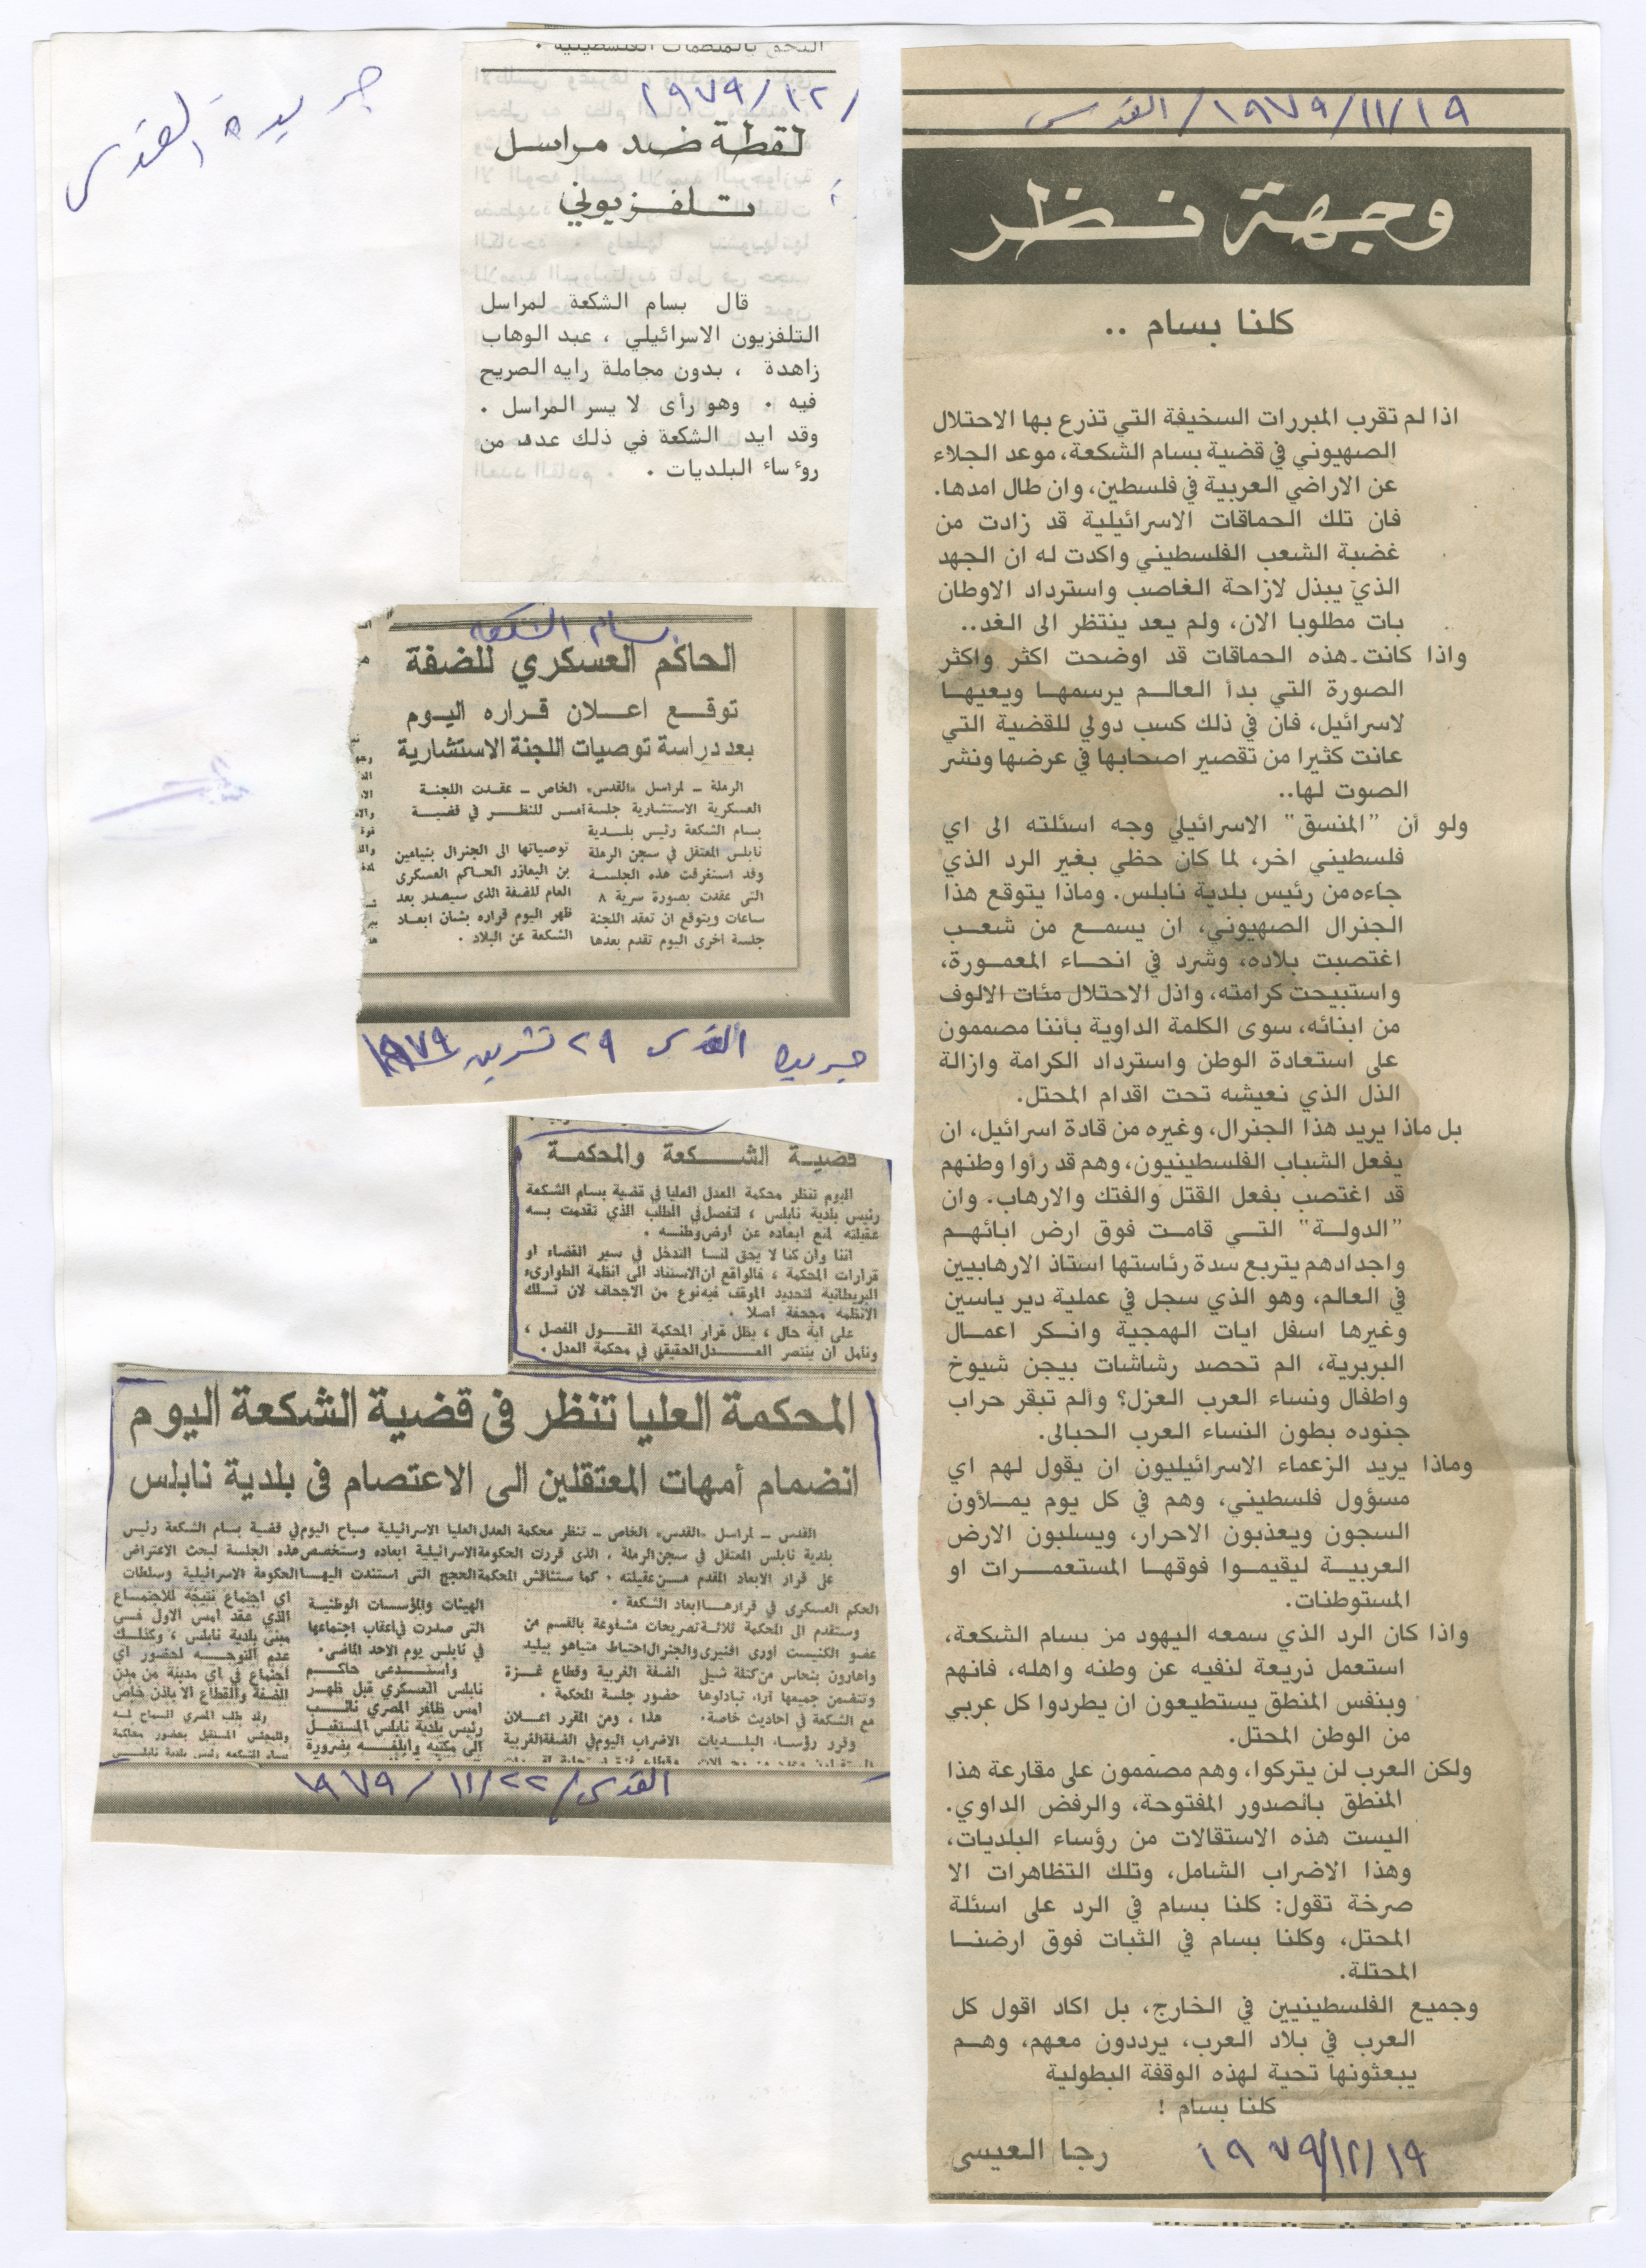 ١٩/١١/١٩٧٩/ القدس
وجهة نظر
كلنا بسام ..
اذا لم تقرب المبررات السخيفة التي تذرع بها الاحتلال
الصهيوني في قضية بسام الشكعة، موعد الجلاء
عن الاراضي العربية في فلسطين، وان طال امدها.
فان تلك الحماقات الاسرائيلية قد زادت من
غضبة الشعب الفلسطيني واكدت له ان الجهد
الذي يبذل لازاحة الغاصب واسترداد الاوطان
بات مطلوبا الان، ولم يعد ينتظر الى الغد..
واذا كانت هذه الحماقات قد اوضحت اكثر واكثر
الصورة التي بدأ العالم يرسمها ويعيها
لاسرائيل، فان في ذلك كسب دولي للقضية التي
عانت كثيرا من تقصير اصحابها في عرضها ونشر
الصوت لها..
ولو أن "المنسق" الاسرائيلي وجه اسئلته الى اي
فلسطيني اخر، لما كان حظي بغير الرد الذي
جاءه من رئيس بلدية نابلس. وماذا يتوقع هذا
الجنرال الصهيوني، ان يسمع من شعب
اغتصبت بلاده، وشرد في انحاء المعمورة،
واستبيحت كرامته، واذل الاحتلال مئات الالوف
من ابنائه، سوى الكلمة الداوية بأننا مصممون
على استعادة الوطن واسترداد الكرامة وازالة
الذل الذي نعيشه تحت اقدام المحتل.
بل ماذا يريد هذا الجنرال، وغيره من قادة اسرائيل، ان
يفعل الشباب الفلسطينيون، وهم قد رأوا وطنهم
قد اغتصب بفعل القتل والفتك والارهاب. وان
"الدولة" التي قامت فوق ارض ابائهم
واجدادهم يتربع سدة رئاستها استاذ الارهابيين
في العالم، وهو الذي سجل في عملية دير ياسين
وغيرها اسفل ايات الهمجية وانكر اعمال
البربرية، الم تحصد رشاشات بيجن شيوخ
واطفال ونساء العرب العزل؟ وألم تبقر حراب
جنوده بطون النساء العرب الحبالى.
وماذا يريد الزعماء الاسرائيليون ان يقول لهم اي
مسؤول فلسطيني، وهم في كل يوم يملأون
السجون ويعذبون الاحرار، ويسلبون الارض
العربية ليقيموا فوقها المستعمرات او
المستوطنات.
واذا كان الرد الذي سمعه اليهود من بسام الشكعة،
استعمل ذريعة لنفيه عن وطنه واهله، فانهم
وبنفس المنطق يستطيعون ان يطردوا كل عربي
من الوطن المحتل.
ولكن العرب لن يتركوا، وهم مصممون على مقارعة هذا
المنطق بالصدور المفتوحة، والرفض الداوي.
اليست هذه الاستقالات من رؤساء البلديات،
وهذا الاضراب الشامل، وتلك التظاهرات الا
صرخة تقول: كلنا بسام في الرد على اسئلة
المحتل، وكلنا بسام في الثبات فوق ارضنا
المحتلة.
وجميع الفلسطينيين في الخارج، بل اكاد اقول كل
العرب في بلاد العرب، يرددون معهم، وهم
يبعثونها تحية لهذه الوقفة البطولية
كلنا بسام !
رجا العيسى
١٩/١٢/١٩٧٩
جريدة القدس
التحق بالمنظمات الفلسطينية .
/١٢/١٩٧٩
لقطة ضد مراسل
تلفزيوني
قال بسام الشكعة لمراسل
التلفزيون الاسرائيلي ، عبد الوهاب
زاهدة ، بدون مجاملة رايه الصريح
فيه . وهو رأى لا يسر المراسل .
وقد ايد الشكعة في ذلك عدد من
روءساء البلديات .
بسام الشكعه
الحاكم العسكري للضفة
توقع اعلان قراره اليوم
بعد دراسة توصيات اللجنة الاستشارية
الرملة – لمراسل «القدس» الخاص – عقدت اللجنة
العسكرية الاستشارية جلسة امس للنظر في قضية
بسام الشكعة رئيس بلدية
نابلس المعتقل في سجن الرملة
وقد استغرقت هذه الجلسة
التى عقدت بصورة سرية ٨
ساعات ويتوقع ان تعقد اللجنة
جلسة اخرى اليوم تقدم بعدها
توصياتها الى الجنرال بنيامين
بن اليعازر الحاكم العسكرى
العام للضفة الذى سيصدر بعد
ظهر اليوم قراره بشان ابعاد
الشكعة عن البلاد .
جريدة القدس ٢٩ تشرين ١٩٧٩
قضية الشكعة والمحكمة
اليوم تنظر محكمة العدل العليا في قضية بسام الشكعة
رئيس بلدية نابلس ، لتفصل في الطلب الذي تقدمت به
عقيلته لمنع ابعاده عن ارض وطنه .
اننا وان كنا لا يحق لنا التدخل في سير القضاء او
قرارات المحكمة ، فالواقع ان الاستناد الى انظمة الطوارىء
البريطانية لتحديد الموقف فيه نوع من الاجحاف لان تلك
الانظمة مجحفة اصلا .
على اية حال ، يظل قرار المحكمة القول الفصل ،
ونامل ان ينتصر العدل الحقيقي في محكمة العدل .
المحكمة العليا تنظر فى قضية الشكعة اليوم
انضمام أمهات المعتقلين الى الاعتصام فى بلدية نابلس
القدس – لمراسل «القدس» الخاص – تنظر محكمة العدل العليا الاسرائيلية صباح اليوم في قضية بسام الشكعة رئيس
بلدية نابلس المعتقل في سجن الرملة ، الذى قررت الحكومة الاسرائيلية ابعاده وستخصص هذه الجلسة لبحث الاعتراض
على قرار الابعاد المقدم من عقيلته . كما ستناقش المحكمة الحجج التى استندت اليها الحكومة الاسرائيلية وسلطات
الحكم العسكرى في قرارها ابعاد الشكعة .
وستقدم الى المحكمة ثلاثة تصريحات مشفوعة بالقسم من
عضو الكنيست اورى افنيرى والجنرال احتياط متياهو بيليد
واهارون بنحاس من كتلة شيلى
وتتضمن جميعها آراء تبادلوها
مع الشكعة في احاديث خاصة .
وقرر رؤساء البلديات
الضفة الغربية وقطاع غزة
حضور جلسة المحكمة .
هذا ، ومن المقرر اعلان
الاضراب اليوم في الضفة الغربية
الهيئات والمؤسسات الوطنية
التى صدرت في اعقاب اجتماعها
في نابلس يوم الاحد الماضى .
واستدعى حاكم
نابلس العسكري قبل ظهر
امس ظافر المصري نائب
رئيس بلدية نابلس المستقيل
الى مكتبه وابلغه بضرورة
اي اجتماع نتيجة للاجتماع
الذي عقد امس الاول فى
مبنى بلدية نابلس ، وكذلك
عدم التوجه لحضور اي
اجتماع في اي مدينة من مدن
الضفة والقطاع الا باذن خاص
وقد طلب المصري السماح له
وللمجلس المستقيل بحضور محاكمة
بسام الشكعة رئيس بلدية نابلس
القدس/ ٢٢/ ١١/ ١٩٧٩